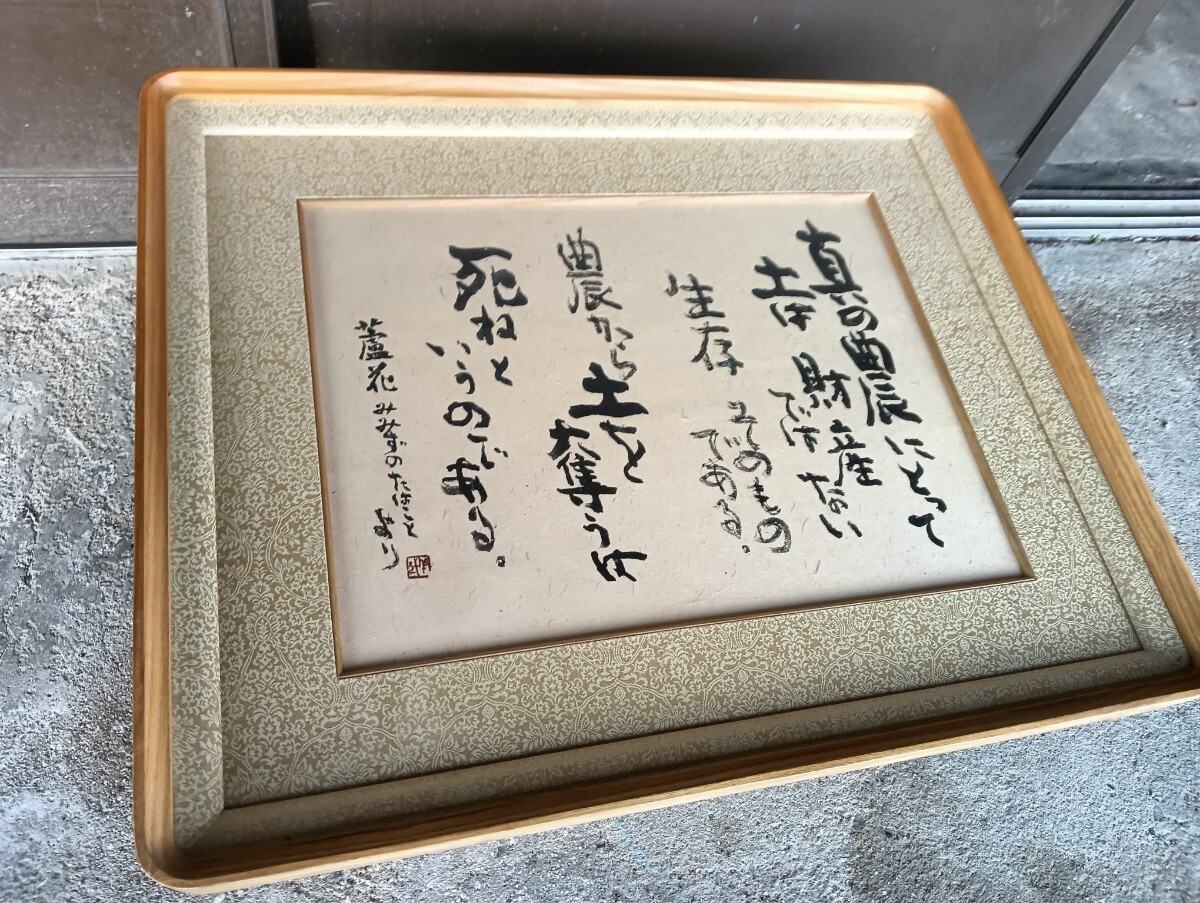 真の農にとって
土は財産ではない
生存そのもの
である。
農から土を
奪うは
死ねと
いうのである。
蘆花 みみずのたはこと より